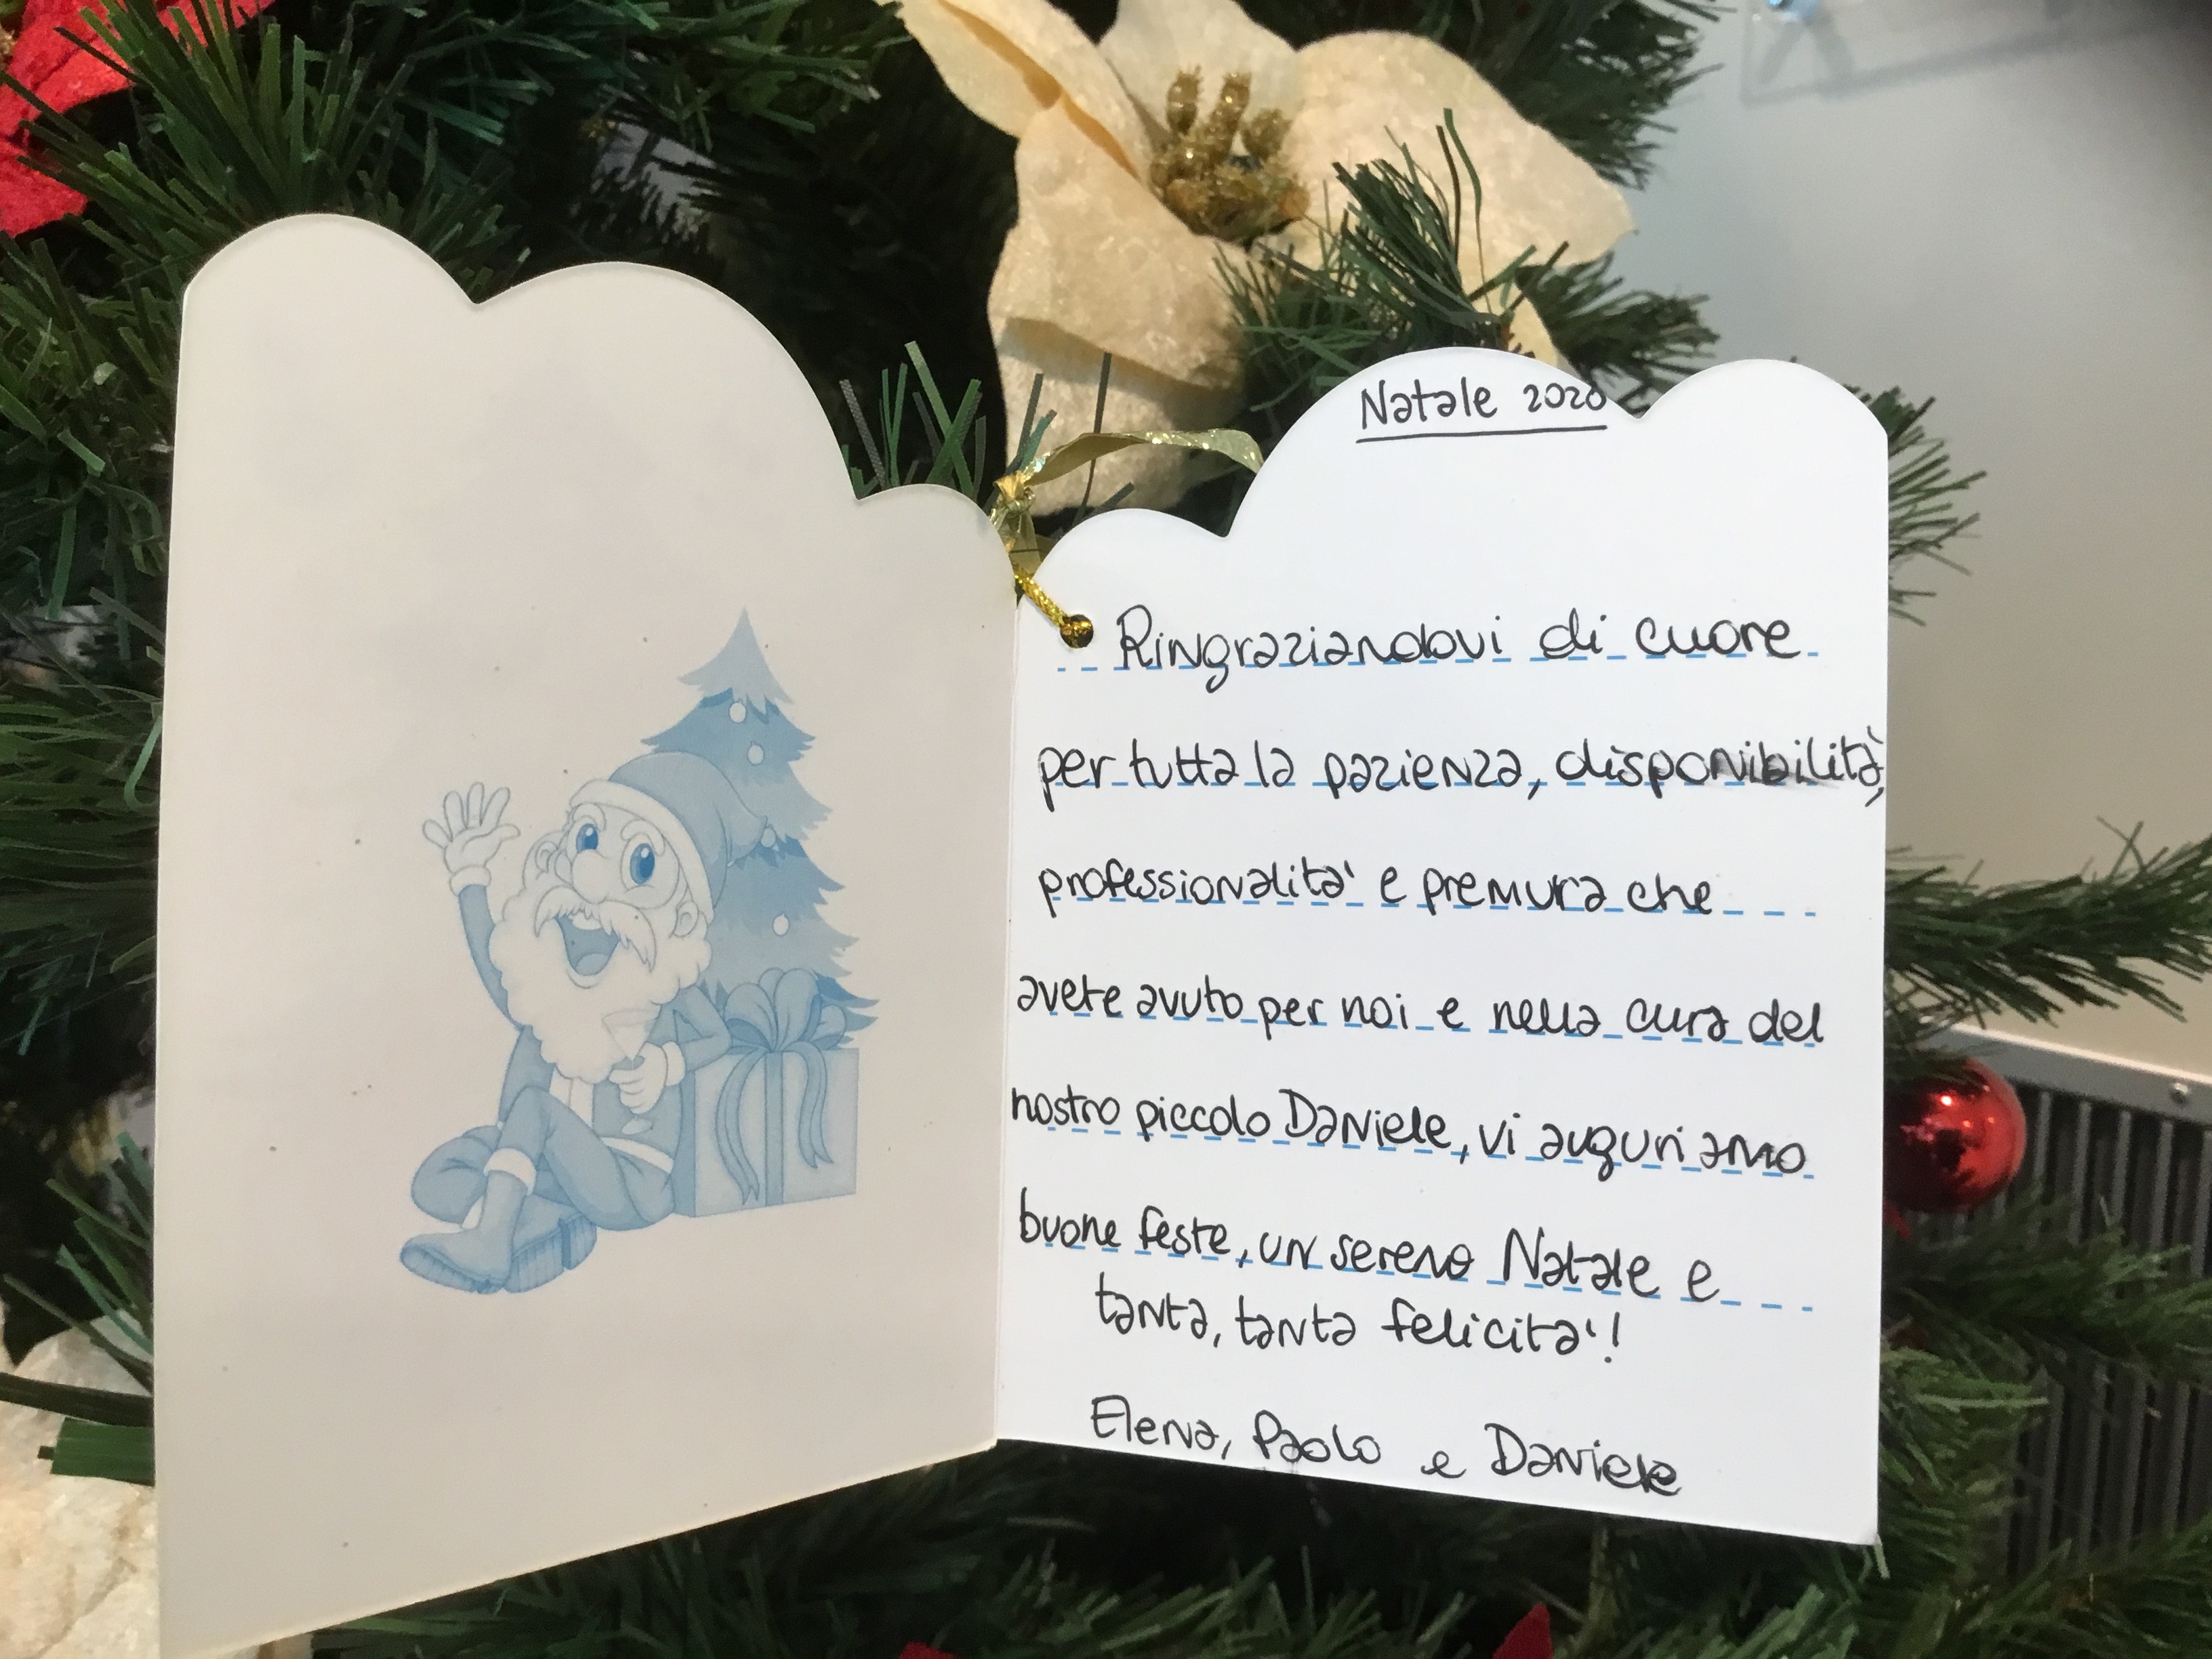 Natale 2020
Ringraziandovi di cuore
per tutta la pazienza, disponibilità,
professionalità e premura che
avete avuto per noi e nella cura del
nostro piccolo Daniele, vi auguriamo
buone feste, un sereno Natale e
tanta, tanta felicità!
Elena, Paolo e Daniele